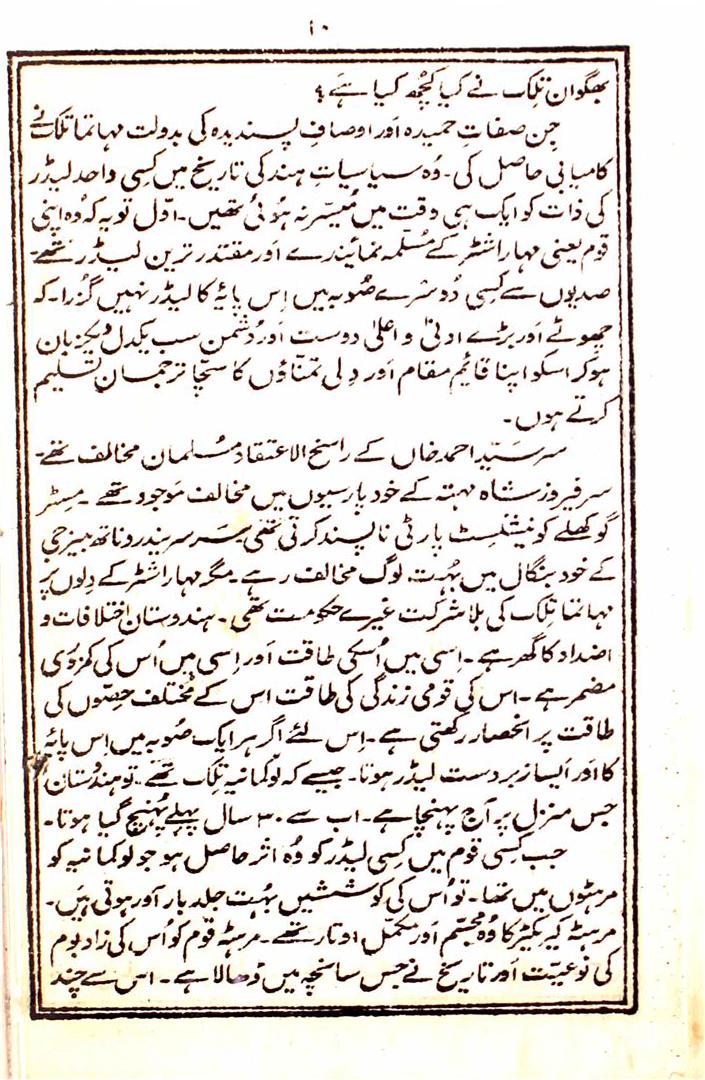 ۱۰
بھگوان تِلک نے کیا کچھ کیا ہے ؟
جن صفاتِ حمیدہ اَور اوصافِ پسندیدہ کی بدولت مہاتما تلک نے
کامیابی حاصل کی۔ وُہ سیاسیاتِ ہند کی تاریخ میں کسِی واحد لیڈر
کی ذات کو ایک ہی وقت میں مُیسّر نہ ہُوئی تھیں۔ اوّل تو یہ کہ وُہ اپنی
قوم یعنی مہاراشٹر کے مُسلّمہ نمائیندے اَور مقتدر ترین لیڈر تھے۔
صدیوں سے کِسی دُوسرے صُوبہ میں اِس پایٔہ کا لیڈر نہیں گُزرا۔ کہ
چھوٹے اَور بڑے ادنیٰ و اعلیٰ دوست اَور دُشمن سب یکدل و یکزبان
ہوکر اسکو اپنا قائم مقام اَور دِلی تمنّاؤں کا سچّا ترجمان تسلیم
کرتے ہوں۔
سر سَیّد احمد خاں کے راسخ الاعتقاد مُسلمان مخالف تھے۔
سر فیروز شاہ مہتہ کے خود پارسیوں میں مخالف مَوجود تھے۔ مسٹر
گوکھلے کو نیشلسٹ پارٹی ناپسند کرتی تھی۔ سر سریندر وناتھ بینرجی
کے خود بنگال میں بہُت لوگ مخالف رہے۔ مگر مہاراشٹر کے دِلوں پر
مہاتما تِلک کی بلا شرکت غیرے حکومت تھی۔ ہندوستان اختلافات و
اضداد کا گھر ہے۔ اِسی میں اُسکی طاقت اَور اِسی میں اُس کی کمزوری
مضمر ہے۔ اس کی قومی زندگی کی طاقت اس کے مُختلف حِصّوں کی
طاقت پر انحصار رکھتی ہے۔ اِس لئے اگر ہر ایک صُوبہ میں اِس پایٔہ
کا اَور اَیسا زبردست لیڈر ہوتا۔ جیسے کہ لوکمانیہ تِلک تھے۔ تو ہندوستان
جس منزل پر آج پہنچا ہے۔ اب سے ۳۰ سال پہلے پُہنچ گیا ہوتا۔
جب کِسی قوم میں کِسی لیڈر کو وُہ اثر حاصل ہو جو لوکمانیہ کو
مرہٹوں میں تھا۔ تو اُس کی کوششیں بہُت جلد بارآور ہوتی ہَیں۔
مرہٹہ کیریکٹر کا وُہ مجسّم اَور مکمّل اوتار تھے۔ مرہٹہ قوم کو اُس کی زاد بوم
کی نوعیّت اَور تاریخ نے جس سانچہ میں ڈھالا ہے۔ اس سے چند